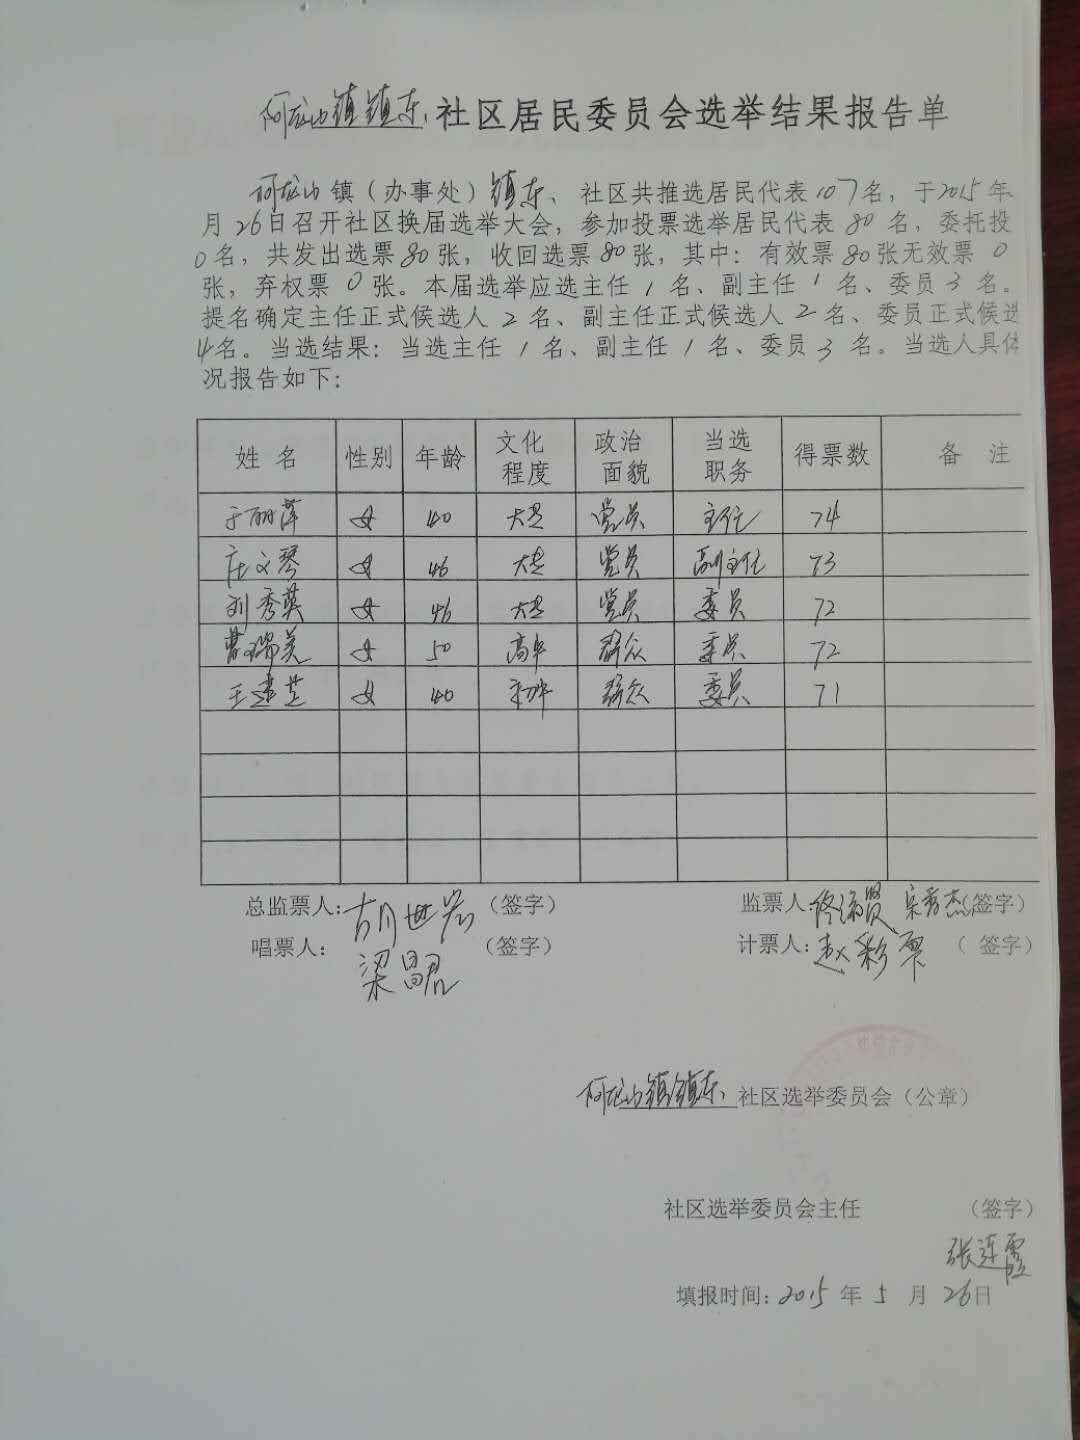 阿龙山镇镇东社区居民委员会选举结果报告单
阿龙山镇（办事处）镇东、社区共推选居民代表107名，于2015年
月26日召开社区换届选举大会，参加投票选举居民代表80名，委托投
0名，共发出选票80张，收回选票80张，其中：有效票80张无效票0
张，弃权票0张。本届选举应选主任1名、副主任1名、委员3名。
提名确定主任正式候选人2名、副主任正式候选人2名、委员正式候选
4名。当选结果：当选主任1名、副主任1名、委员3名。当选人具体
况报告如下：
姓名 性别 年龄 文化程度 政治面貌 当选职务 得票数 备注
于丽萍 女 40 大专 党员 主任 74
庄文琴 女 46 大专 党员 副主任 73
刘秀英 女 46 大专 党员 委员 72
曹瑞美 女 50 高中 群众 委员 72
王建芝 女 40 初中 群众 委员 71
总监票人：胡世宏（签字） 监票人：佟满贤 宋秀杰（签字）
唱票人：梁昌君（签字） 计票人：赵彩霞（签字）
阿龙山镇镇东、社区选举委员会（公章）
社区选举委员会主任（签字）
张连霞
填报时间：2015年5月26日